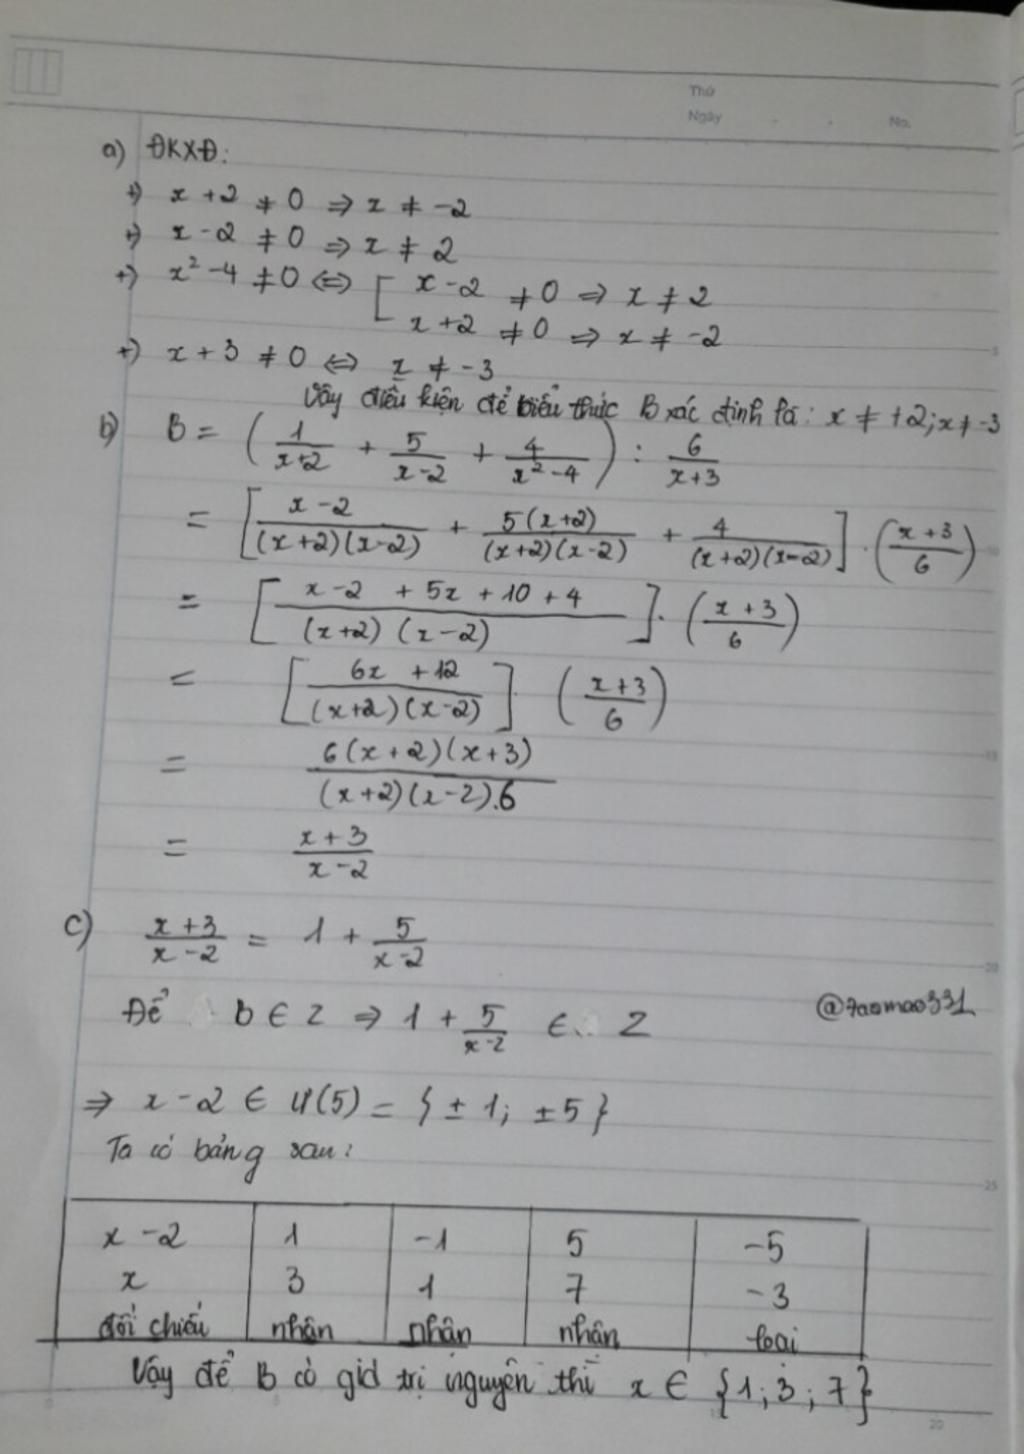 Thứ
Ngày . . No.
a) ĐKXĐ:
+) x + 2 ≠ 0 ⇒ x ≠ -2
+) x - 2 ≠ 0 ⇒ x ≠ 2
+) x² - 4 ≠ 0 ⇔ [ x - 2 ≠ 0 ⇒ x ≠ 2
x + 2 ≠ 0 ⇒ x ≠ -2
+) x + 3 ≠ 0 ⇔ x ≠ -3
Vậy điều kiện để biểu thức B xác định là: x ≠ +2; x ≠ -3
b) B = (1/(x+2) + 5/(x-2) + 4/(x²-4)) : 6/(x+3)
= [(x-2)/((x+2)(x-2)) + 5(x+2)/((x+2)(x-2)) + 4/((x+2)(x-2))] . ((x+3)/6)
= [(x-2 + 5x + 10 + 4)/((x+2)(x-2))] . ((x+3)/6)
= [(6x + 12)/((x+2)(x-2))] . ((x+3)/6)
= 6(x+2)(x+3)/((x+2)(x-2).6)
= (x+3)/(x-2)
c) (x+3)/(x-2) = 1 + 5/(x-2)
Để b ∈ Z ⇒ 1 + 5/(x-2) ∈ Z
@7aomao331
⇒ x - 2 ∈ Ư(5) = {±1; ±5}
Ta có bảng sau:
x - 2 1 -1 5 -5
x 3 1 7 -3
đối chiếu nhận nhận nhận loại
Vậy để B có giá trị nguyên thì x ∈ {1; 3; 7}